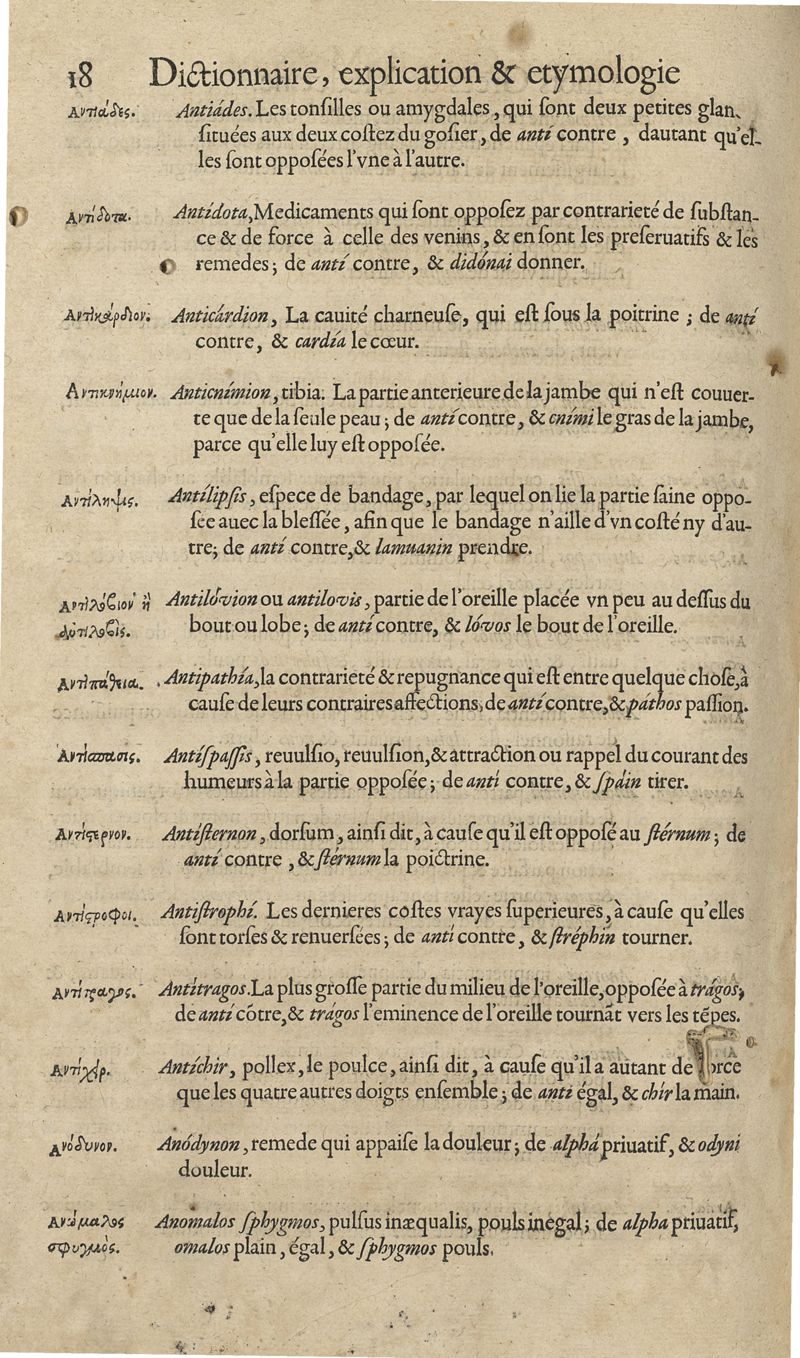 18 Dictionnaire, explication & etymologie
Αντιάδες. Antiádes. Les tonſilles ou amygdales, qui ſont deux petites glan.
ſituées aux deux coſtez du goſier, de antí contre, dautant qu'el-
les ſont oppoſées l'vne à l'autre.
Αντίδοτα. Antídota, Medicaments qui ſont oppoſez par contrarieté de ſubſtan-
ce & de force à celle des venins, & en ſont les preſeruatifs & les
remedes; de antí contre, & didónai donner.
Αντικάρδιον. Anticárdion, La cauité charneuſe, qui eſt ſous la poitrine; de antí
contre, & cardía le cœur.
Αντικνήμιον. Anticnímion, tibia. La partie anterieure de la jambe qui n'eſt couuer-
te que de la ſeule peau; de antí contre, & cními le gras de la jambe,
parce qu'elle luy eſt oppoſée.
Αντίληψις. Antílipſis, eſpece de bandage, par lequel on lie la partie ſaine oppo-
ſée auec la bleſſée, afin que le bandage n'aille d'vn coſté ny d'au-
tre; de antí contre, & lamuanin prendre.
Αντιλόβιον ἢ Antilóvion ou antilovis, partie de l'oreille placée vn peu au deſſus du
ἀντιλοβὶς. bout ou lobe; de antí contre, & lóvos le bout de l'oreille.
Αντιπάθεια. Antipathía, la contrarieté & repugnance qui eſt entre quelque choſe, à
cauſe de leurs contraires affections; de antí contre, & páthos paſſion.
Αντίσπασις. Antíſpaſſis, reuulſio, reuulſion, & attraction ou rappel du courant des
humeurs à la partie oppoſée; de antí contre, & ſpáin tirer.
Αντίστερνον. Antíſternon, dorſum, ainſi dit, à cauſe qu'il eſt oppoſé au ſtérnum; de
antí contre, & ſtérnum la poictrine.
Αντίστροφοι. Antiſtrophí. Les dernieres coſtes vrayes ſuperieures, à cauſe qu'elles
ſont torſes & renuerſées; de antí contre, & ſtréphin tourner.
Αντίτραγος. Antítragos. La plus groſſe partie du milieu de l'oreille, oppoſée à trágos,
de antí cõtre, & trágos l'eminence de l'oreille tournãt vers les tẽpes.
Αντίχειρ. Antíchir, pollex, le poulce, ainſi dit, à cauſe qu'il a autant de force
que les quatre autres doigts enſemble; de anti égal, & chír la main.
Ανόδυνον. Anódynon, remede qui appaiſe la douleur; de alphá priuatif, & odyni
douleur.
Ανώμαλος Anomalos ſphygmos, pulſus inæqualis, pouls inegal; de alpha priuatif,
σφυγμὸς. omalos plain, égal, & ſphygmos pouls.